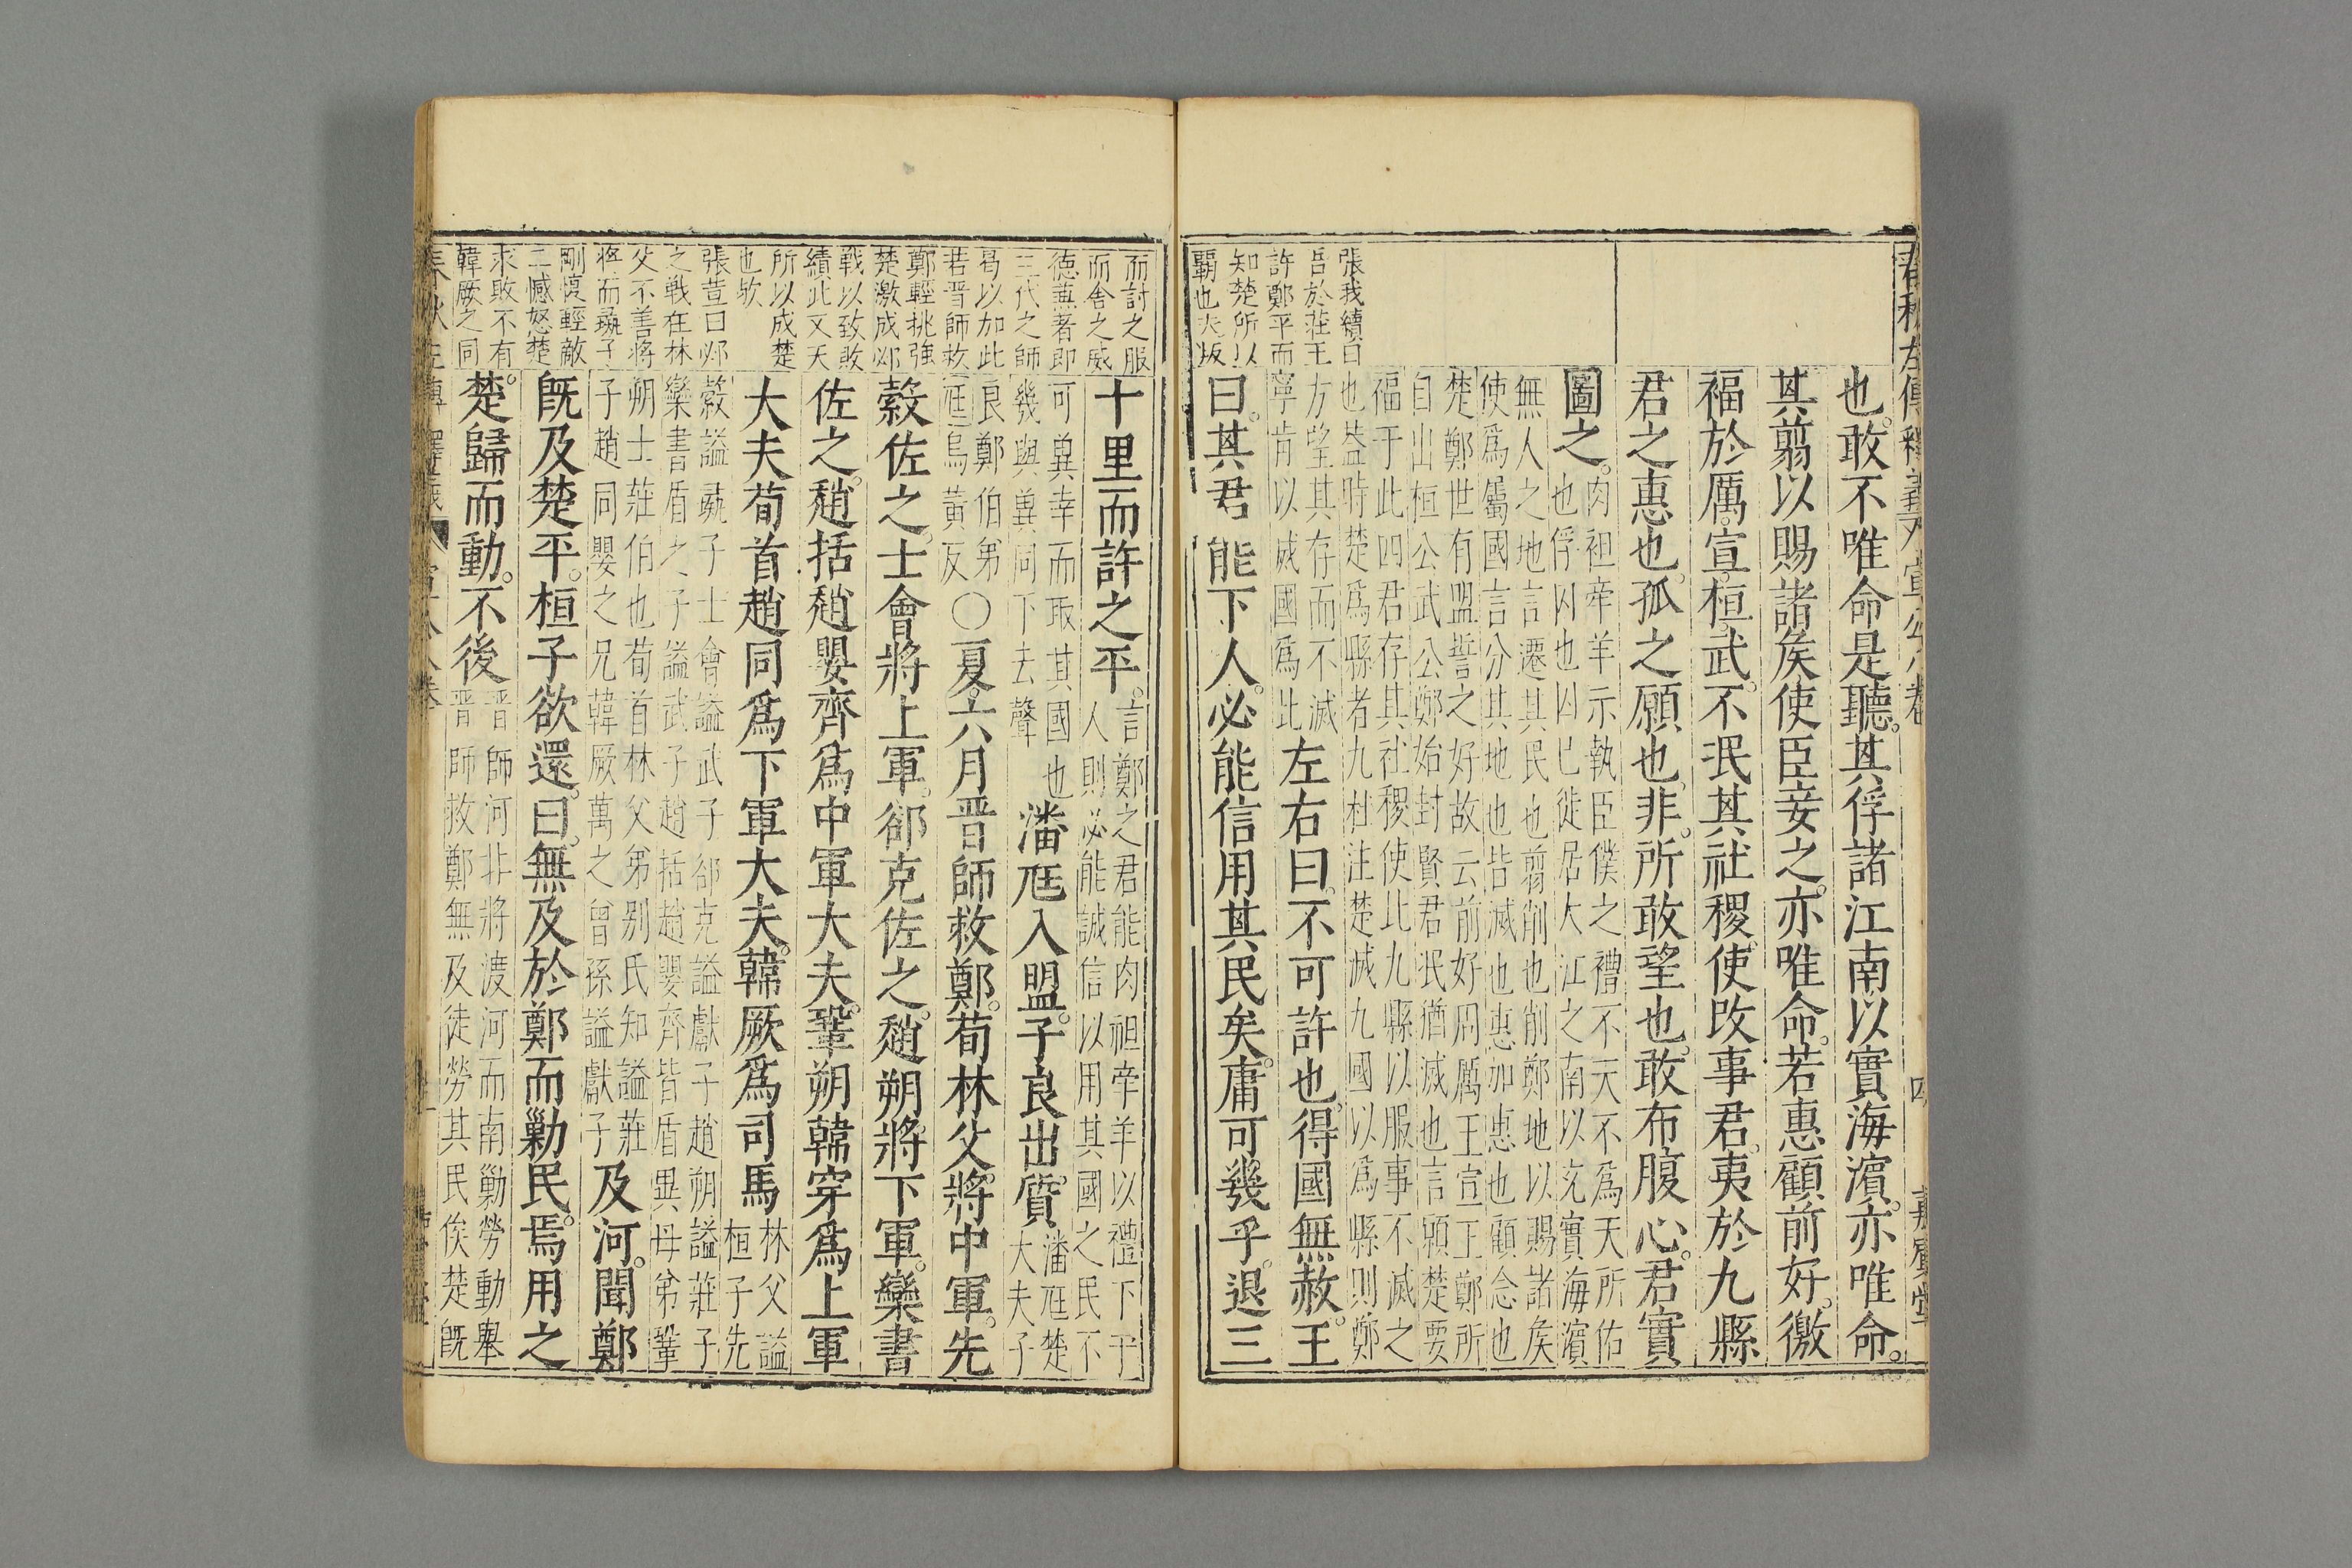 春秋左傳釋義大 宣公 八卷 四 嘉賓堂
也。敢不唯命是聽。其俘諸江南以實海濱。亦唯命。
其翦以賜諸矦使臣妾之。亦唯命。若惠顧前好。徼
福於厲。宣。桓。武。不泯其社稷。使改事君。夷於九縣
君之惠也。孤之願也。非所敢望也。敢布腹心。君實
圖之。
肉袒牽羊示執臣僕之禮不天不為天所佑
也俘囚也囚巳徙居大江之南以充實海濱
無人之地言遷其民也翦削也削鄭地以賜諸矦
使爲屬國言分其地也皆滅也惠加惠也顧念也
楚鄭世有盟誓之好故云前好周厲王宣王鄭所
自出桓公武公鄭始封賢君泯猶滅也言願楚要
福于此四君存其社稷使比九縣以服事不滅之
也益時楚爲縣者九杜注楚滅九國以爲縣則鄭
方望其存而不滅
寧肯以滅國爲比
左右曰。不可許也。得國無赦。王
曰。其君能下人。必能信用其民矣。庸可幾乎。退三
張我續曰
吕於莊王
許鄭平而
知楚所以
覇也夫叛
而討之服
而舍之威
德兼著即
三代之師
曷以加此
若晋師救
鄭輕挑強
楚激成邲
戰以致敗
績此又天
所以成楚
也欤
張萱曰邲
之戰在林
父不善將
將而彘子
剛愎輕敵
二憾怒楚
求敗不有
韓厥之同
十里而許之平。
言鄭之君能肉袒牽羊以禮下于
人則必能誠信以用其國之民不
可兾幸而取其國也
幾與兾同下去聲
潘尫入盟。子良出質。
潘尫楚大夫子
良鄭伯弟
尫烏黃反
〇夏。六月晋師救鄭。荀林父。將中軍。先
縠佐之。士會將上軍。郤克佐之。趙朔。將下軍。欒書
佐之。趙括趙嬰齊爲中軍大夫。鞏朔韓穿爲上軍
大夫荀首趙同爲下軍大夫。韓厥爲司馬
林父謚
桓子先
縠謚彘子士會謚武子郤克謚獻子趙朔謚莊子
欒書盾之子謚武子趙括趙嬰齊皆盾異母弟鞏
朔士莊伯也荀首林父弟别氏知謚莊
子趙同嬰之兄韓厥萬之曾孫謚獻子
及河。聞鄭
旣及楚平。桓子欲還。曰。無及於鄭而勦民。焉用之
楚歸而動。不後
晋師河非將渡河而南勦勞動舉
晋師救鄭無及徒勞其民俟楚旣